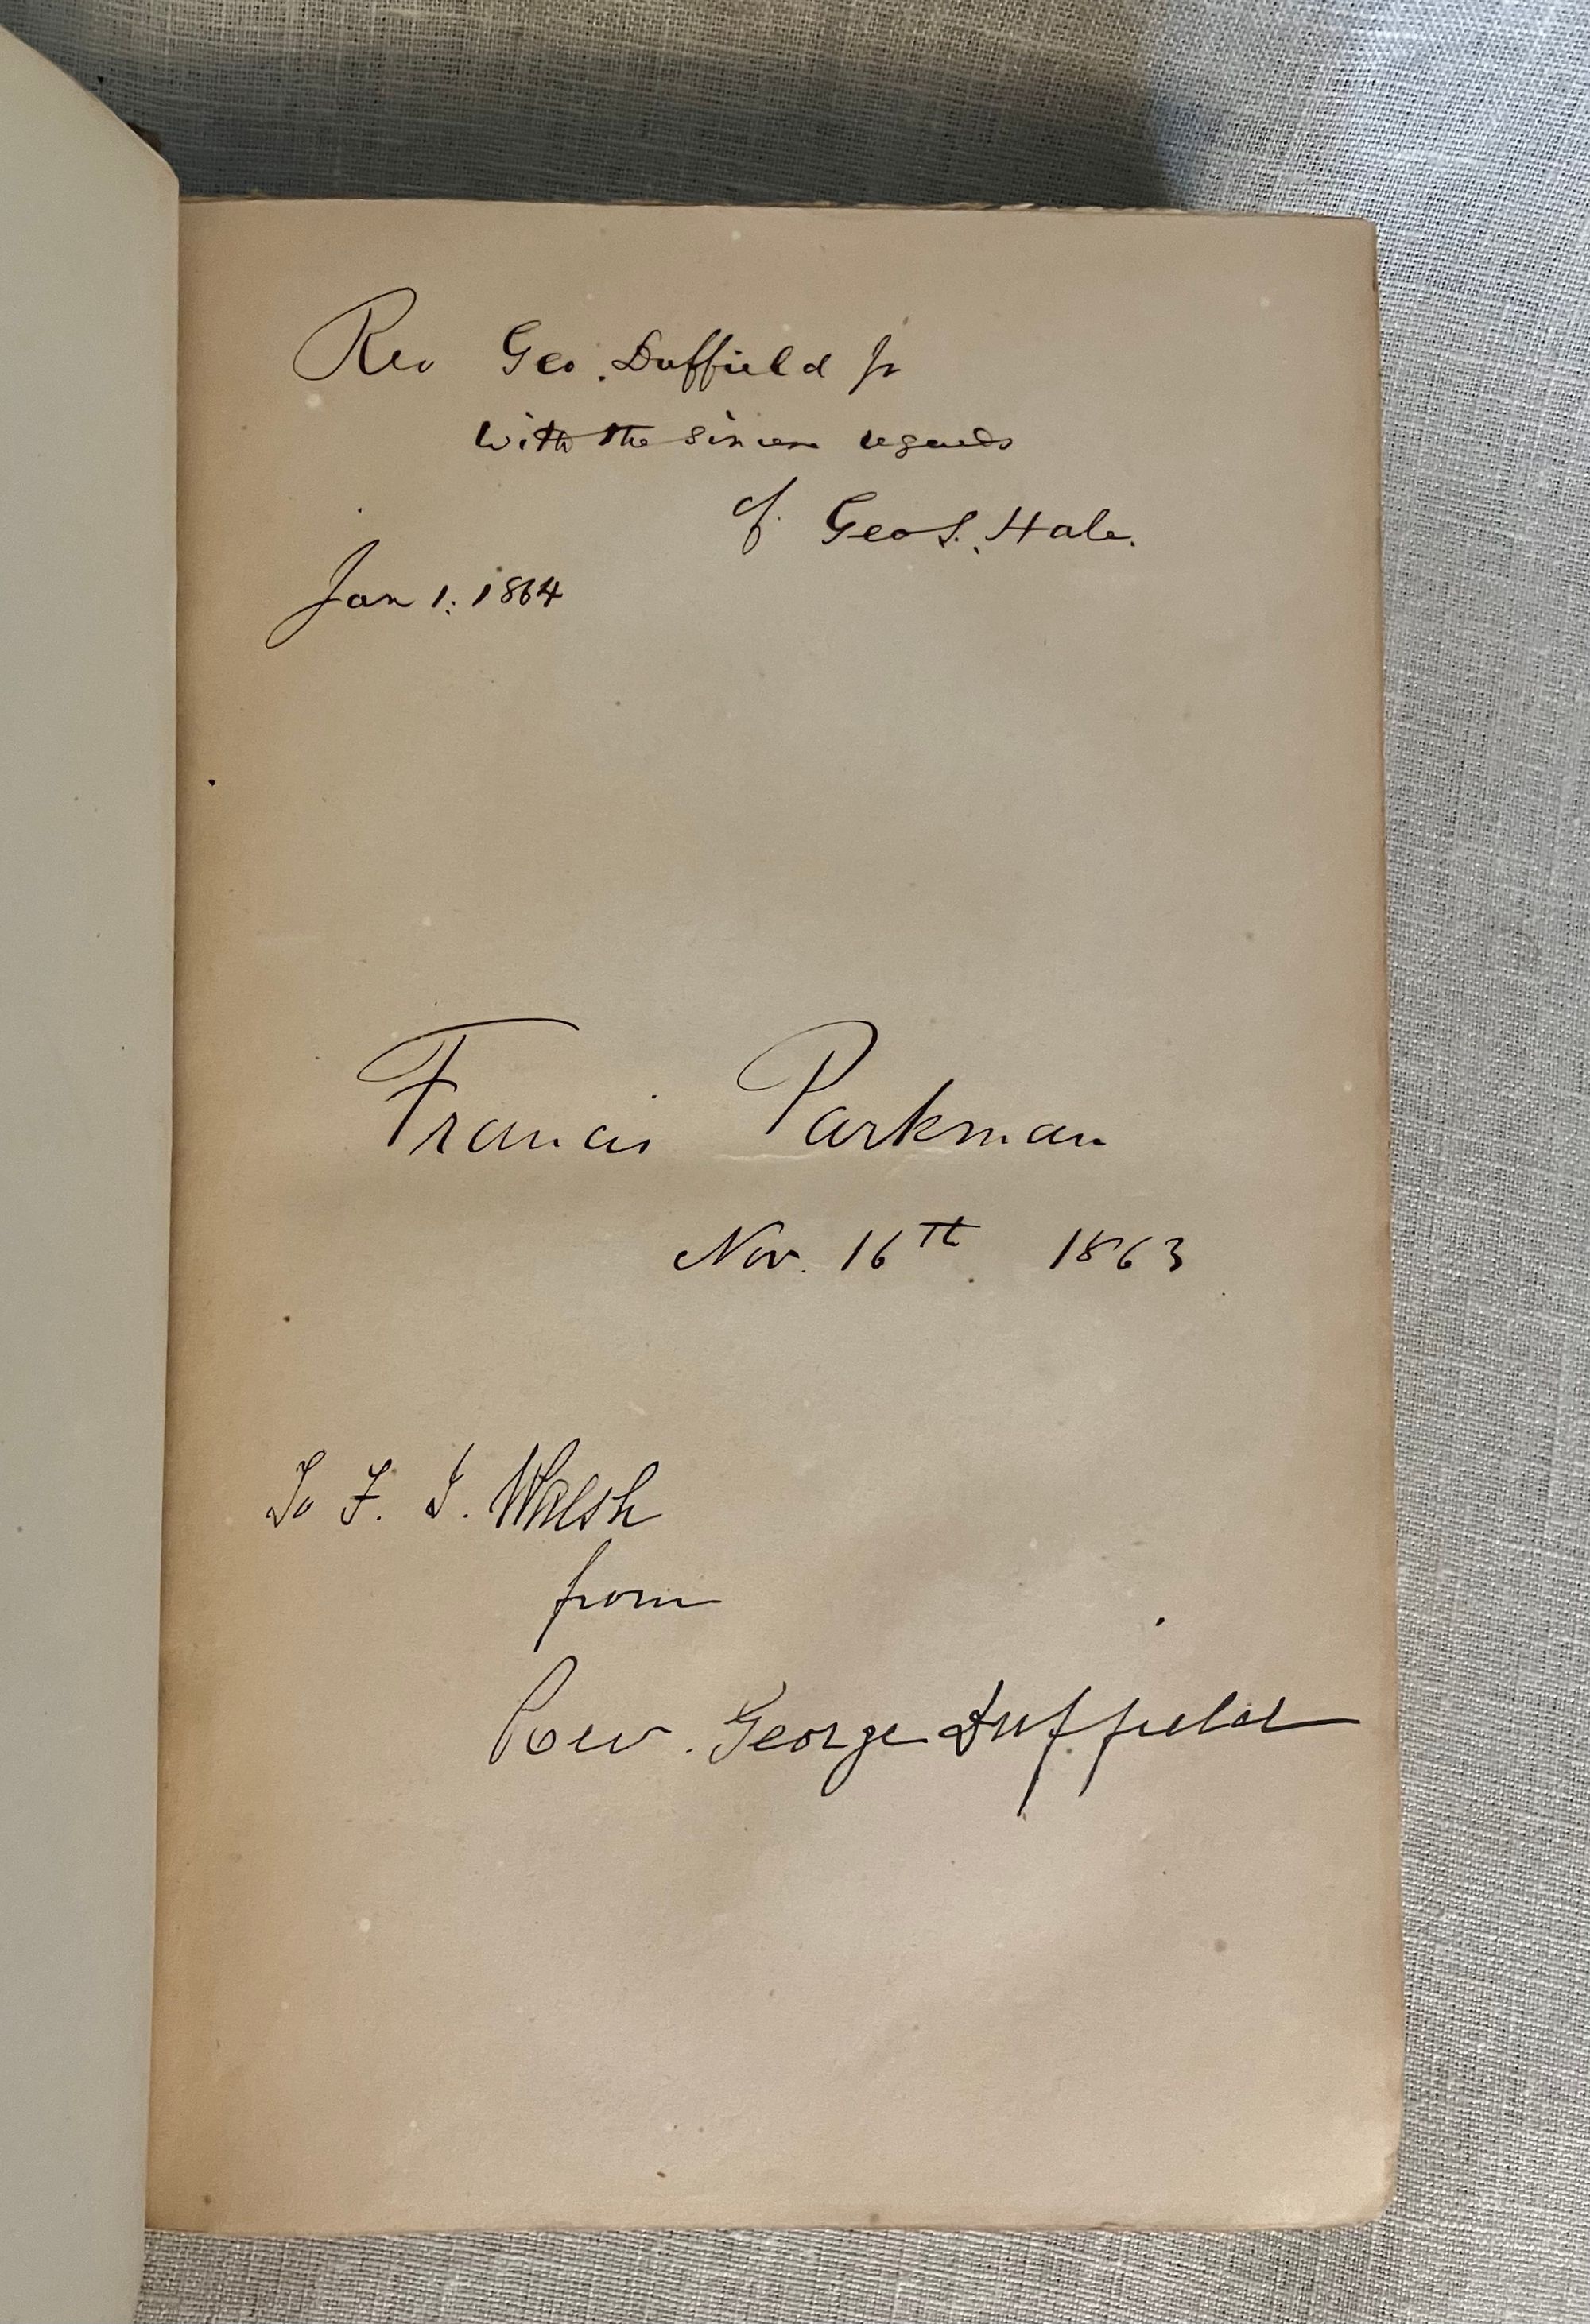 Rev Geo. Duffield Jr
With the sincere regards
of Geo S. Hale.
Jan 1. 1864
Francis Parkman
Nov. 16th 1863
To F. J. Walsh
from
Rev. George Duffield